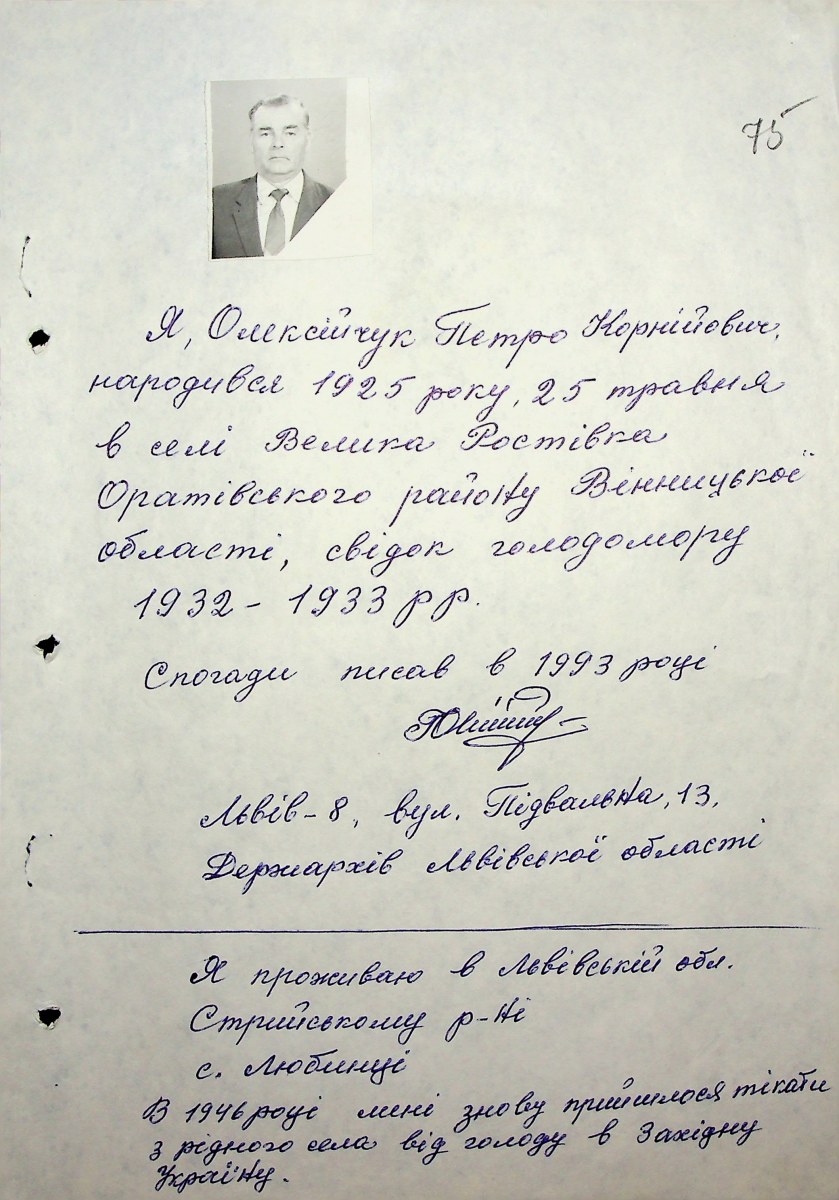 75
Я, Олексійчук Петро Корнійович,
народився 1925 року, 25 травня
в селі Велика Ростівка
Оратівського району Вінницької
області, свідок голодомору
1932 - 1933 р р.
Спогади писав в 1993 році
Львів - 8, вул. Підвальна, 13,
Держархів Львівської області
Я проживаю в Львівській обл.
Стрийському р-ні
с. Любинці
В 1946 році мені знову прийшлося тікати
з рідного села від голоду в Західну
Україну.